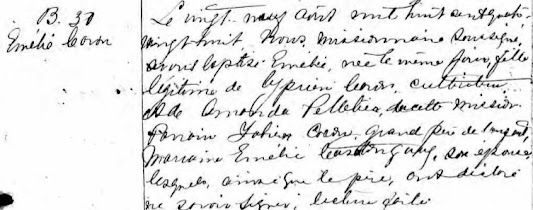 B. 30
Emélie Caron
Le vingt-neuf Août mil huit cent quatre-
vingt huit Nous, missionnaire soussigné,
avons baptisé Emélie, née le même jour, fille
légitime de Cyprien Caron, cultivateur
et de Amanda Pelletier, de cette mission
Parrain Fabien Caron, Grand père de l'enfant,
Marraine Emélie son épouse,
lesquels, ainsi que le père, ont déclaré
ne savoir signer, lecture faite